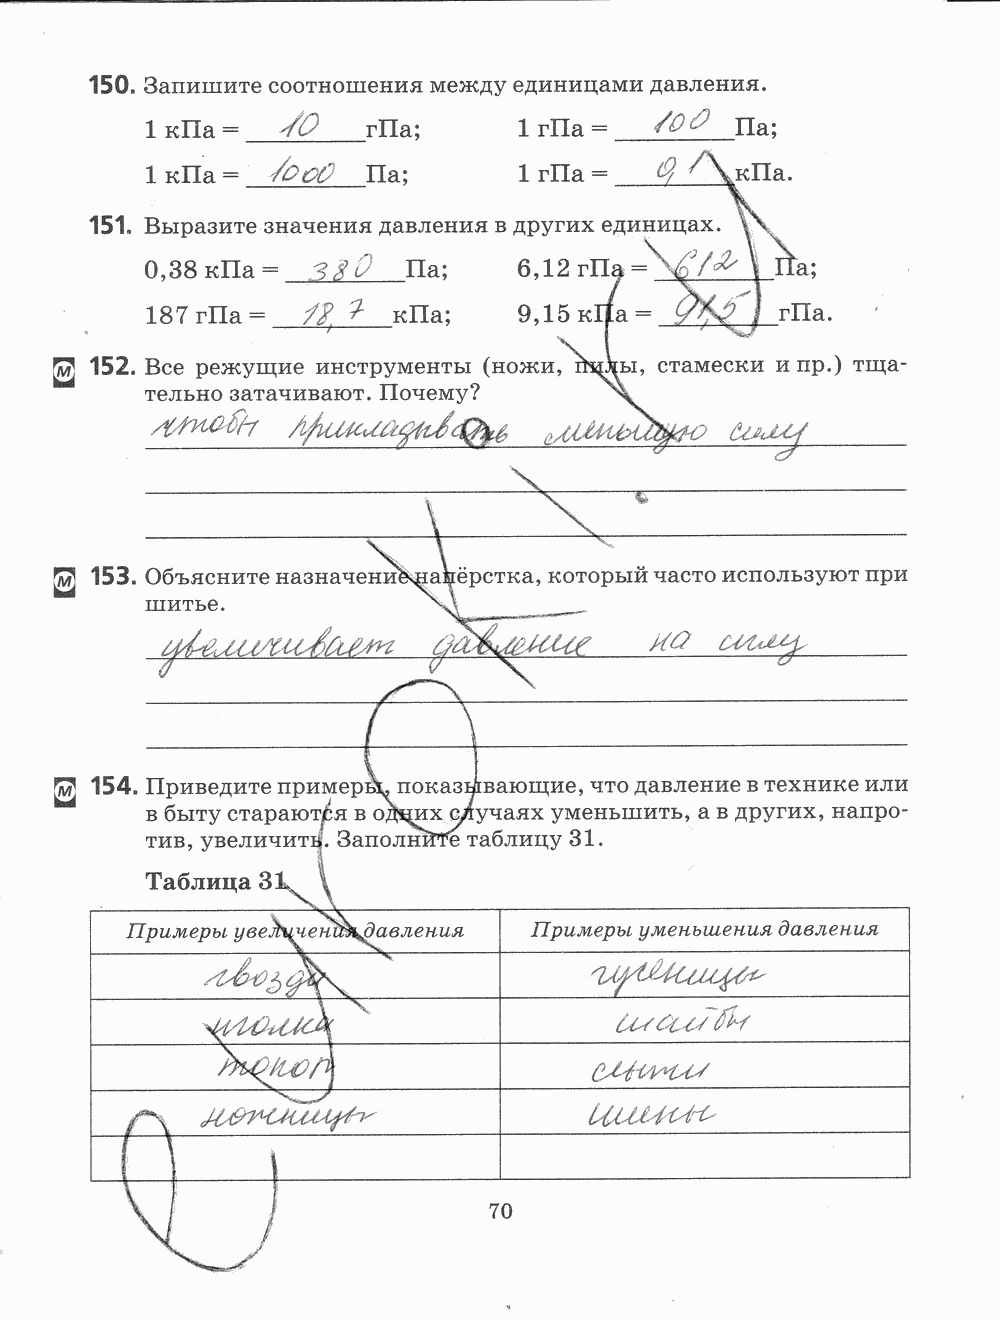 150. Запишите соотношения между единицами давления.
1 кПа = 10 гПа; 1 гПа = 100 Па;
1 кПа = 1000 Па; 1 гПа = 0,1 кПа.
151. Выразите значения давления в других единицах.
0,38 кПа = 380 Па; 6,12 гПа = 612 Па;
187 гПа = 18,7 кПа; 9,15 кПа = 91,5 гПа.
М 152. Все режущие инструменты (ножи, пилы, стамески и пр.) тща-
тельно затачивают. Почему?
чтобы прикладывать меньшую силу
М 153. Объясните назначение напёрстка, который часто используют при
шитье.
увеличивает давление на силу
М 154. Приведите примеры, показывающие, что давление в технике или
в быту стараются в одних случаях уменьшить, а в других, напро-
тив, увеличить. Заполните таблицу 31.
Таблица 31
Примеры увеличения давления Примеры уменьшения давления
гвозди гусеницы
иголка шайбы
топор лыжи
ножницы шины
70